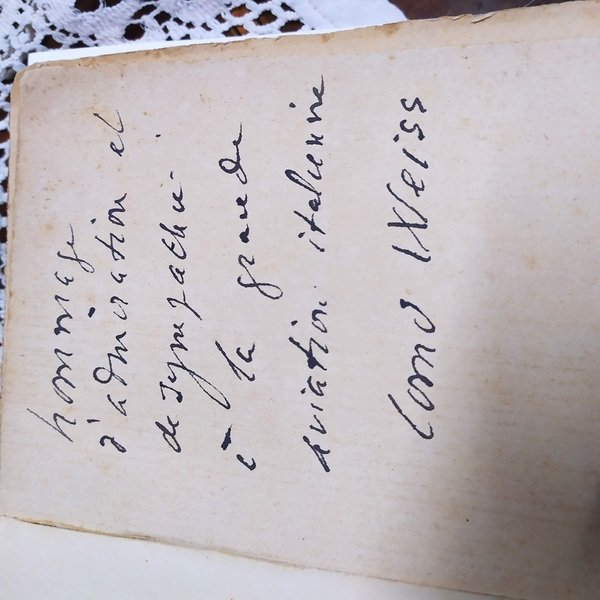 hommage
d'admiration et
de sympathie
à la grande
aviation italienne
Comd Weiss